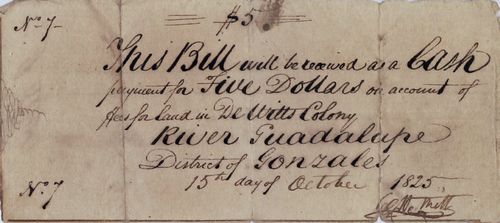 No. 7- $5
This Bill will be received as a Cash
payment for Five Dollars on account of
fees for land in De Witts Colony
River Guadalupe
District of Gonzales
15th day of October 1825.
No. 7